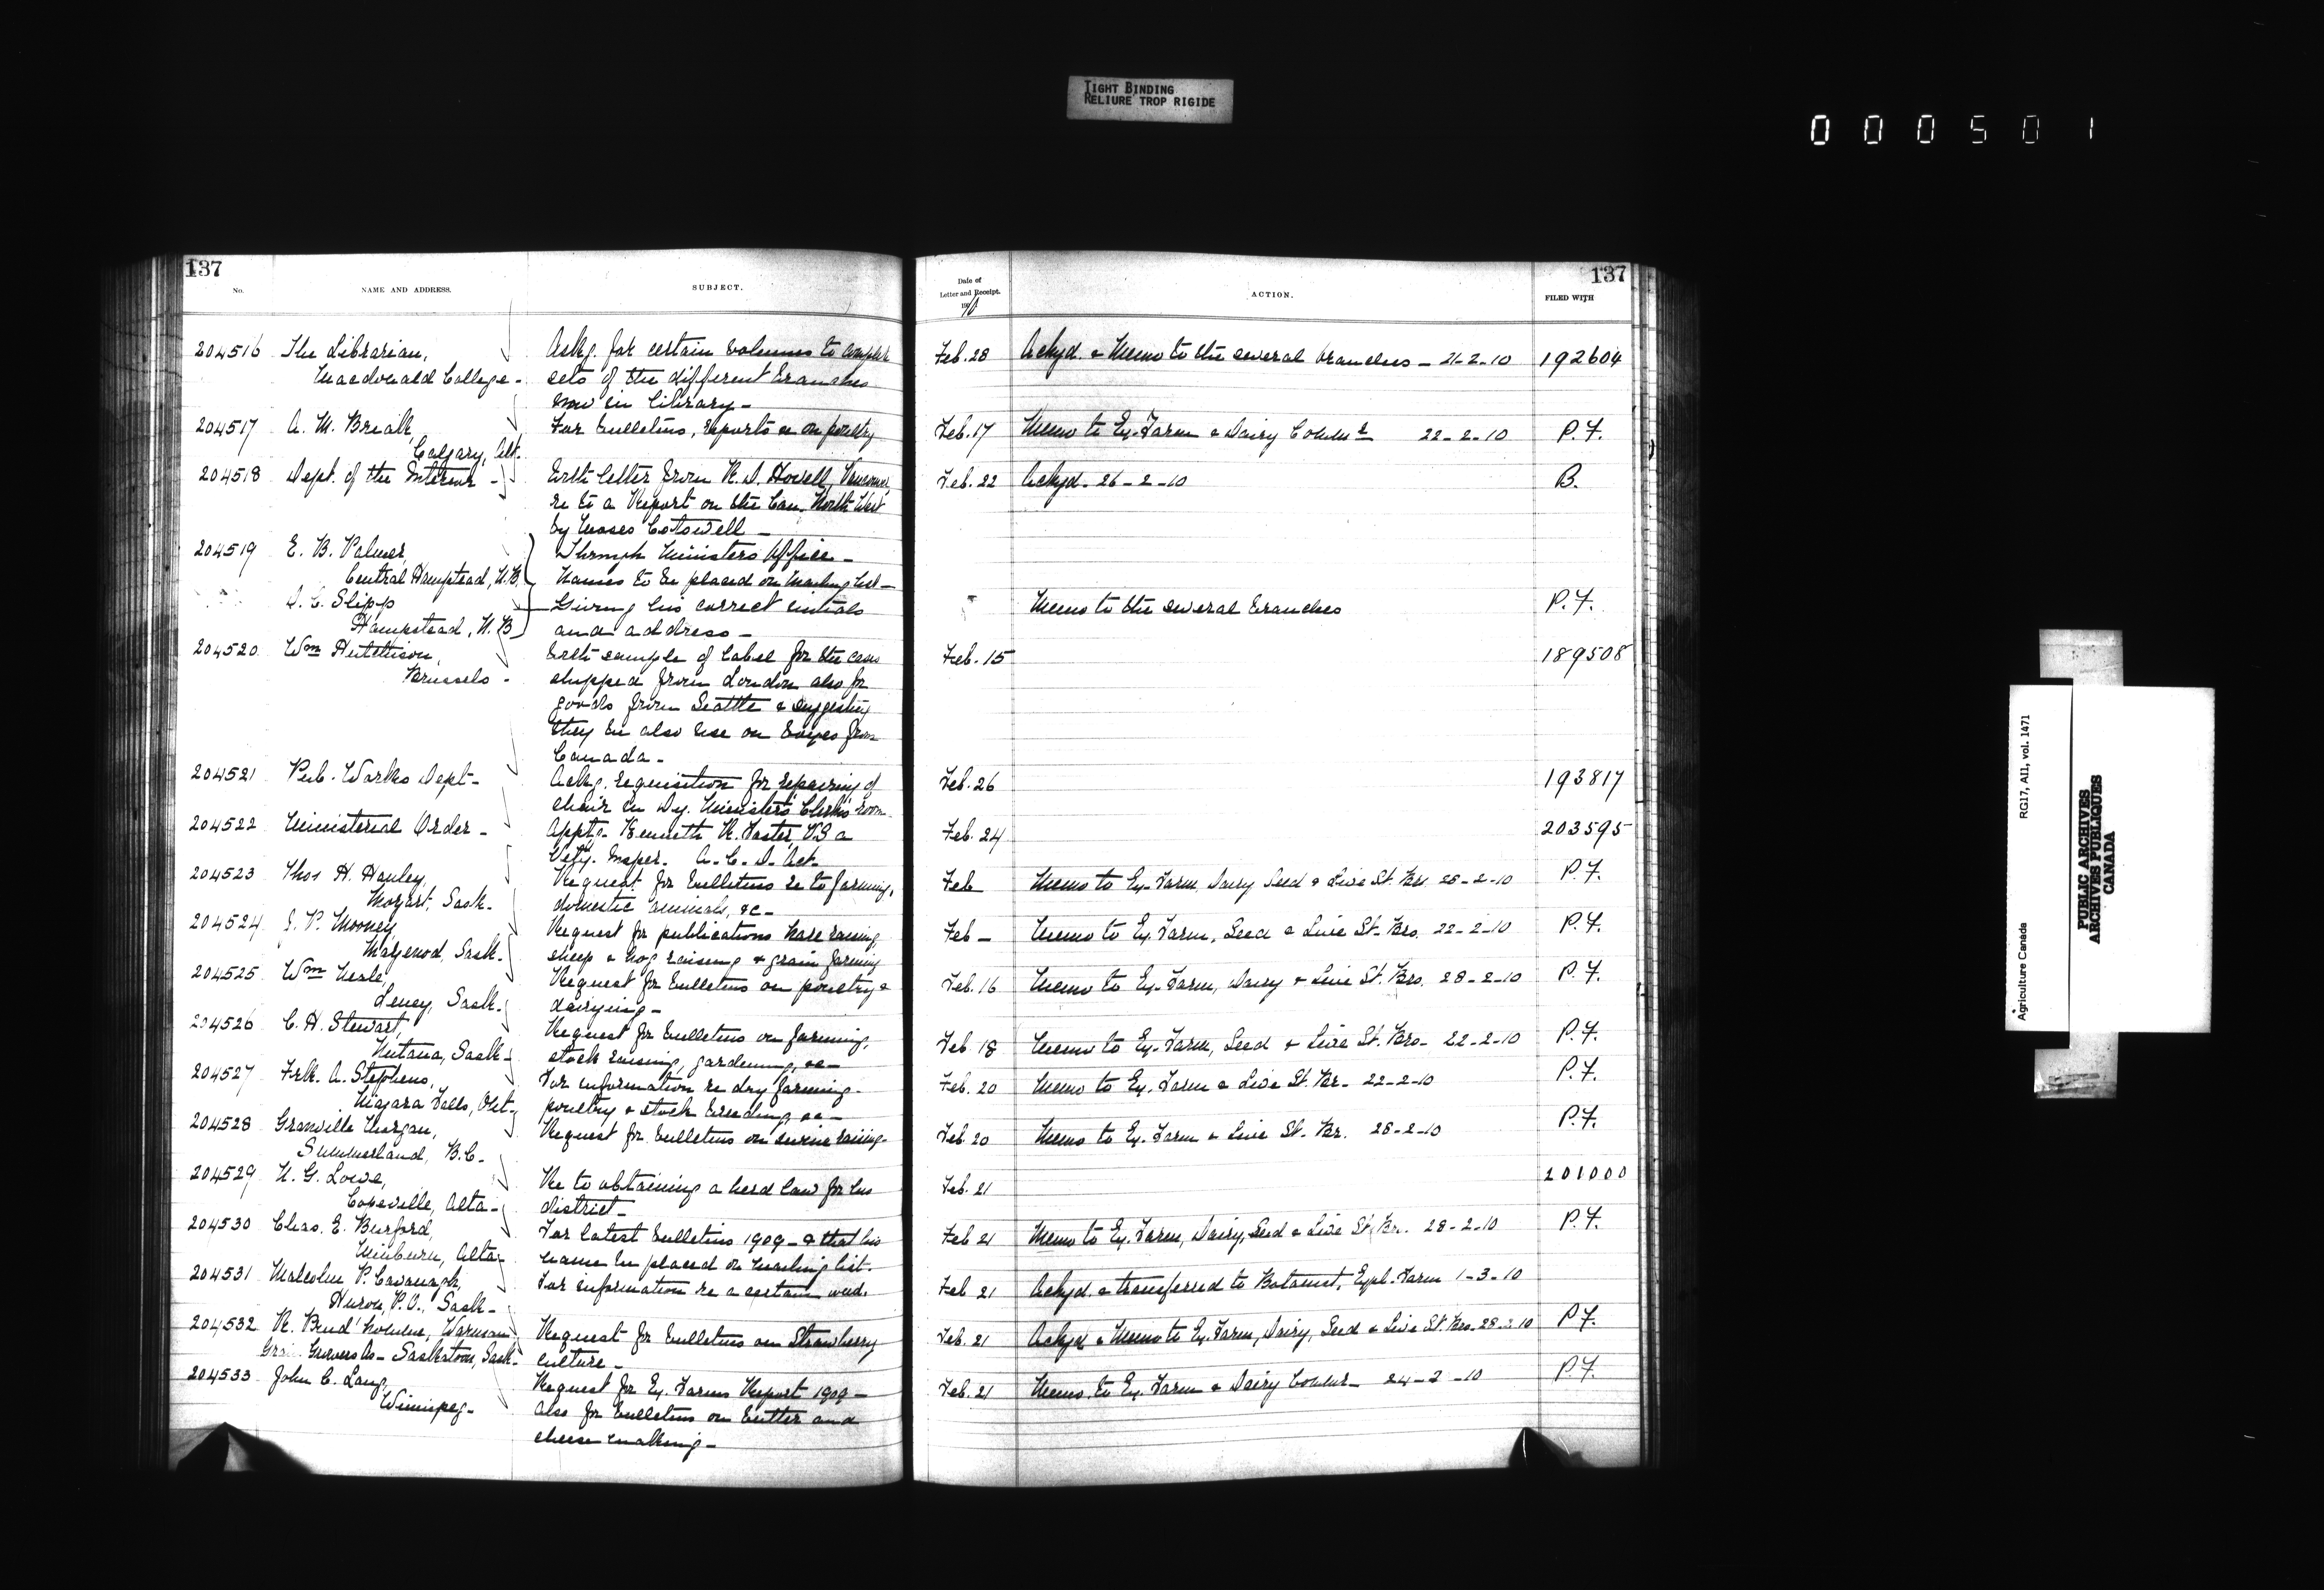 TIGHT BINDING
RELIURE TROP RIGIDE
000501
137
No.
NAME AND ADDRESS.
SUBJECT.
204516 The Librarian,
Macdonald College -
Askg. for certain volumes to complete
sets of the different branches
now in library -
204517 A. M.
Calgary, Alt.
For bulletins, reports &c on poultry
204518 Dept. of the Interior -
With letter from R. D. Howell, Vancouver
re to a Report on the Can. North West
by Moses Cotswell -
204519 E. B. Palmer,
Central Hampstead, N.B.
Through Ministers Office -
Names to be placed on mailing list -
A. C. Slipp
Hampstead, N.B.
Giving his correct initials
and address -
204520 Wm Hutchison,
Brussels -
With sample of label for the cases
shipped from London also for
goods from Seattle & suggesting
they be also use on boxes from
Canada -
204521 Pub. Works Dept -
Ackg. requisition for repairing of
chair in Dy. Ministers' Clerks room
204522 Ministerial Order -
Apptg. Kenneth R. Foster, VS a
Vety. Insper. A. C. D. Act.
204523 Thos H. Hanley,
Mozart, Sask.
Request for bulletins re to farming,
domestic animals, &c -
204524 J. P. Mooney,
Mazenod, Sask.
Request for publications horse raising
sheep & hog raising & grain farming
204525 Wm Neale,
Leney, Sask.
Request for bulletins on poultry &
dairying -
204526 C. H. Stewart,
Nutana, Sask -
Request for bulletins on farming,
stock raising, gardening, &c -
204527 Frk. A. Stephens,
Niagara Falls, Ont -
For information re dry farming -
poultry & stock breeding, &c -
204528 Granville Morgan,
Summerland, B.C.
Request for bulletins on swine raising -
204529 N. G. Lowe,
Copeville, Alta -
Re to obtaining a herd law for his
district -
204530 Chas. E. Burford,
Minburn, Alta -
For latest bulletins 1909 - & that his
name be placed on mailing list.
204531 Malcolm P. Cavanagh,
Huron, P.O., Sask -
For information re a certain weed.
204532 R. Prud'homme, Warman
Grain Growers As - Saskatoon, Sask -
Request for bulletins on Strawberry
culture -
204533 John C. Lang,
Winnipeg -
Request for Ex. Farms Report 1909 -
also for bulletins on butter and
cheese making -
137
Date of
Letter and Receipt.
190 10
ACTION.
FILED WITH
Feb. 28 Ackgd. & Memo to the several branches - 21-2-10 192604
Feb. 17 Memo to Ex. Farm & Dairy Commr 22-2-10 P.F.
Feb. 22 Ackgd. 26-2-10 B.
Memo to the several branches P.F.
Feb. 15 189508
Feb. 26 193817
Feb. 24 203595
Feb Memo to Ex. Farm, Dairy Seed & Live St. Br. 28-2-10 P.F.
Feb - Memo to Ex. Farm, Seed & Live St. Brs. 22-2-10 P.F.
Feb. 16 Memo to Ex. Farm, Dairy & Live St. Brs. 28-2-10 P.F.
Feb. 18 Memo to Ex. Farm, Seed & Live St. Brs - 22-2-10 P.F.
Feb. 20 Memo to Ex. Farm & Live St. Br - 22-2-10 P.F.
Feb. 20 Memo to Ex. Farm & Live St. Br. 28-2-10 P.F.
Feb. 21 201000
Feb 21 Memo to Ex. Farm, Dairy, Seed & Live St. Br. 28-2-10 P.F.
Feb 21 Ackgd. & transferred to Botanist, Expl. Farm 1-3-10
Feb. 21 Ackgd & Memo to Ex. Farm, Dairy, Seed & Live St. Brs. 28-2-10 P.F.
Feb. 21 Memo. to Ex. Farm & Dairy Commr - 24-2-10 P.F.
Agriculture Canada RG17, AII, vol. 1471
PUBLIC ARCHIVES
ARCHIVES PUBLIQUES
CANADA